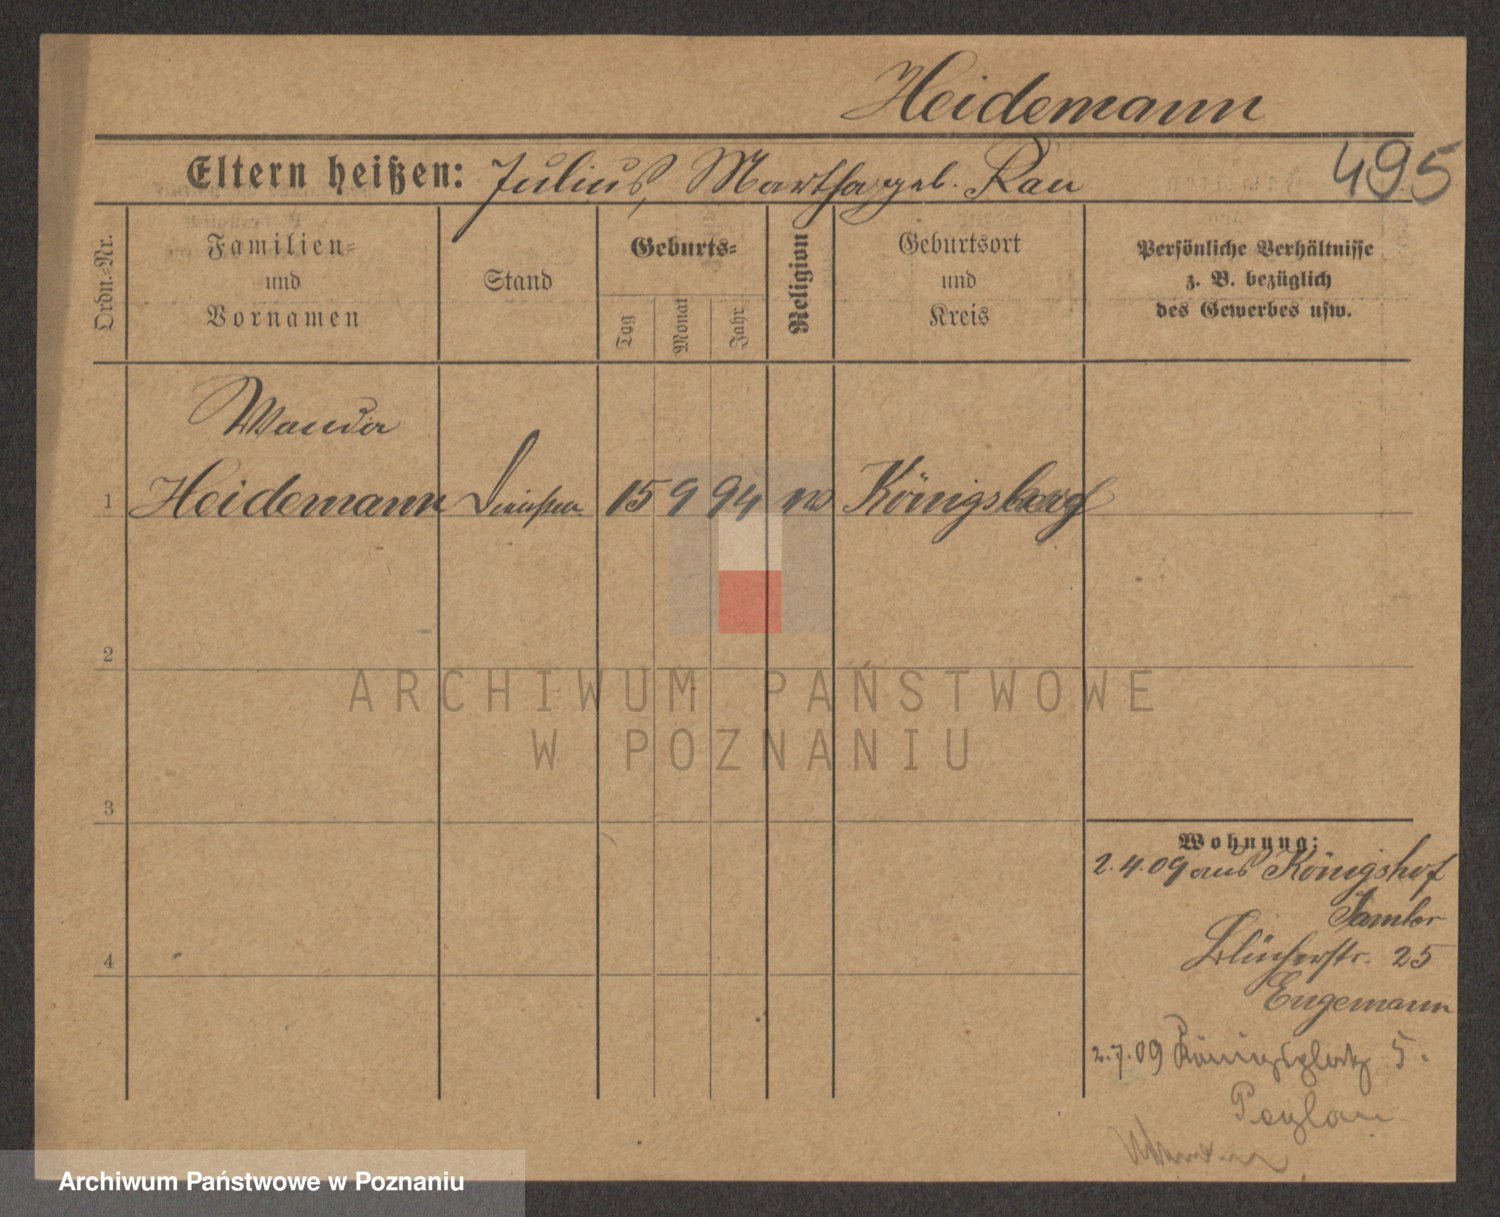 Heidemann
Eltern heißen: Julius, Martha geb. Rau
495
Ordn.=Nr.
Familien=
und
Vornamen
Stand
Geburts=
Tag
Monat
Jahr
Religion
Geburtsort
und
Kreis
Persönliche Verhältnisse
z. B. bezüglich
des Gewerbes usw.
Wanda
1 Heidemann 15 9 94 Königsberg
2
3
4
Wohnung:
2.4.09 aus Königshof
Blücherstr. 25
Engemann
2.7.09 Königsplatz 5.
ARCHIWUM PAŃSTWOWE
W POZNANIU
Archiwum Państwowe w Poznaniu